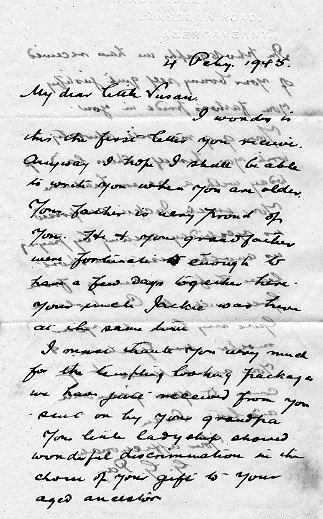 LANSDOWN ROAD,
ABERGAVENNY.
4 Feby. 1945.
My dear little Susan,
I wonder is
this the first letter you receive.
Anyway I hope I shall be able
to write you when you are older.
Your father is very proud of
you. He & your grandfather
were fortunate enough to
have a few days together here.
Your uncle Jackie was here
at the same time.
I must thank you very much
for the tempting looking package
we have just received from you
sent on by your grandpa
Your little ladyship showed
wonderful discrimination in the
choice of your gift to your
aged ancestor